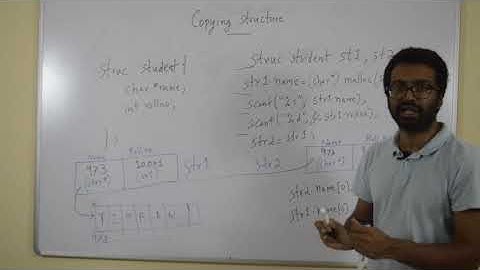 Copying structure
struc student {
char *name;
int rollno;
};
struc student st1, st2
str1.name = (char*) malloc(
scanf("%s", str1.name);
scanf("%d", & str1.rollno);
str2 = str1;
Name
Rollno
973
(char*)
10001
(int)
str1
str2
Name
973
(char*)
973
str2.name[0]
str1.name[0]